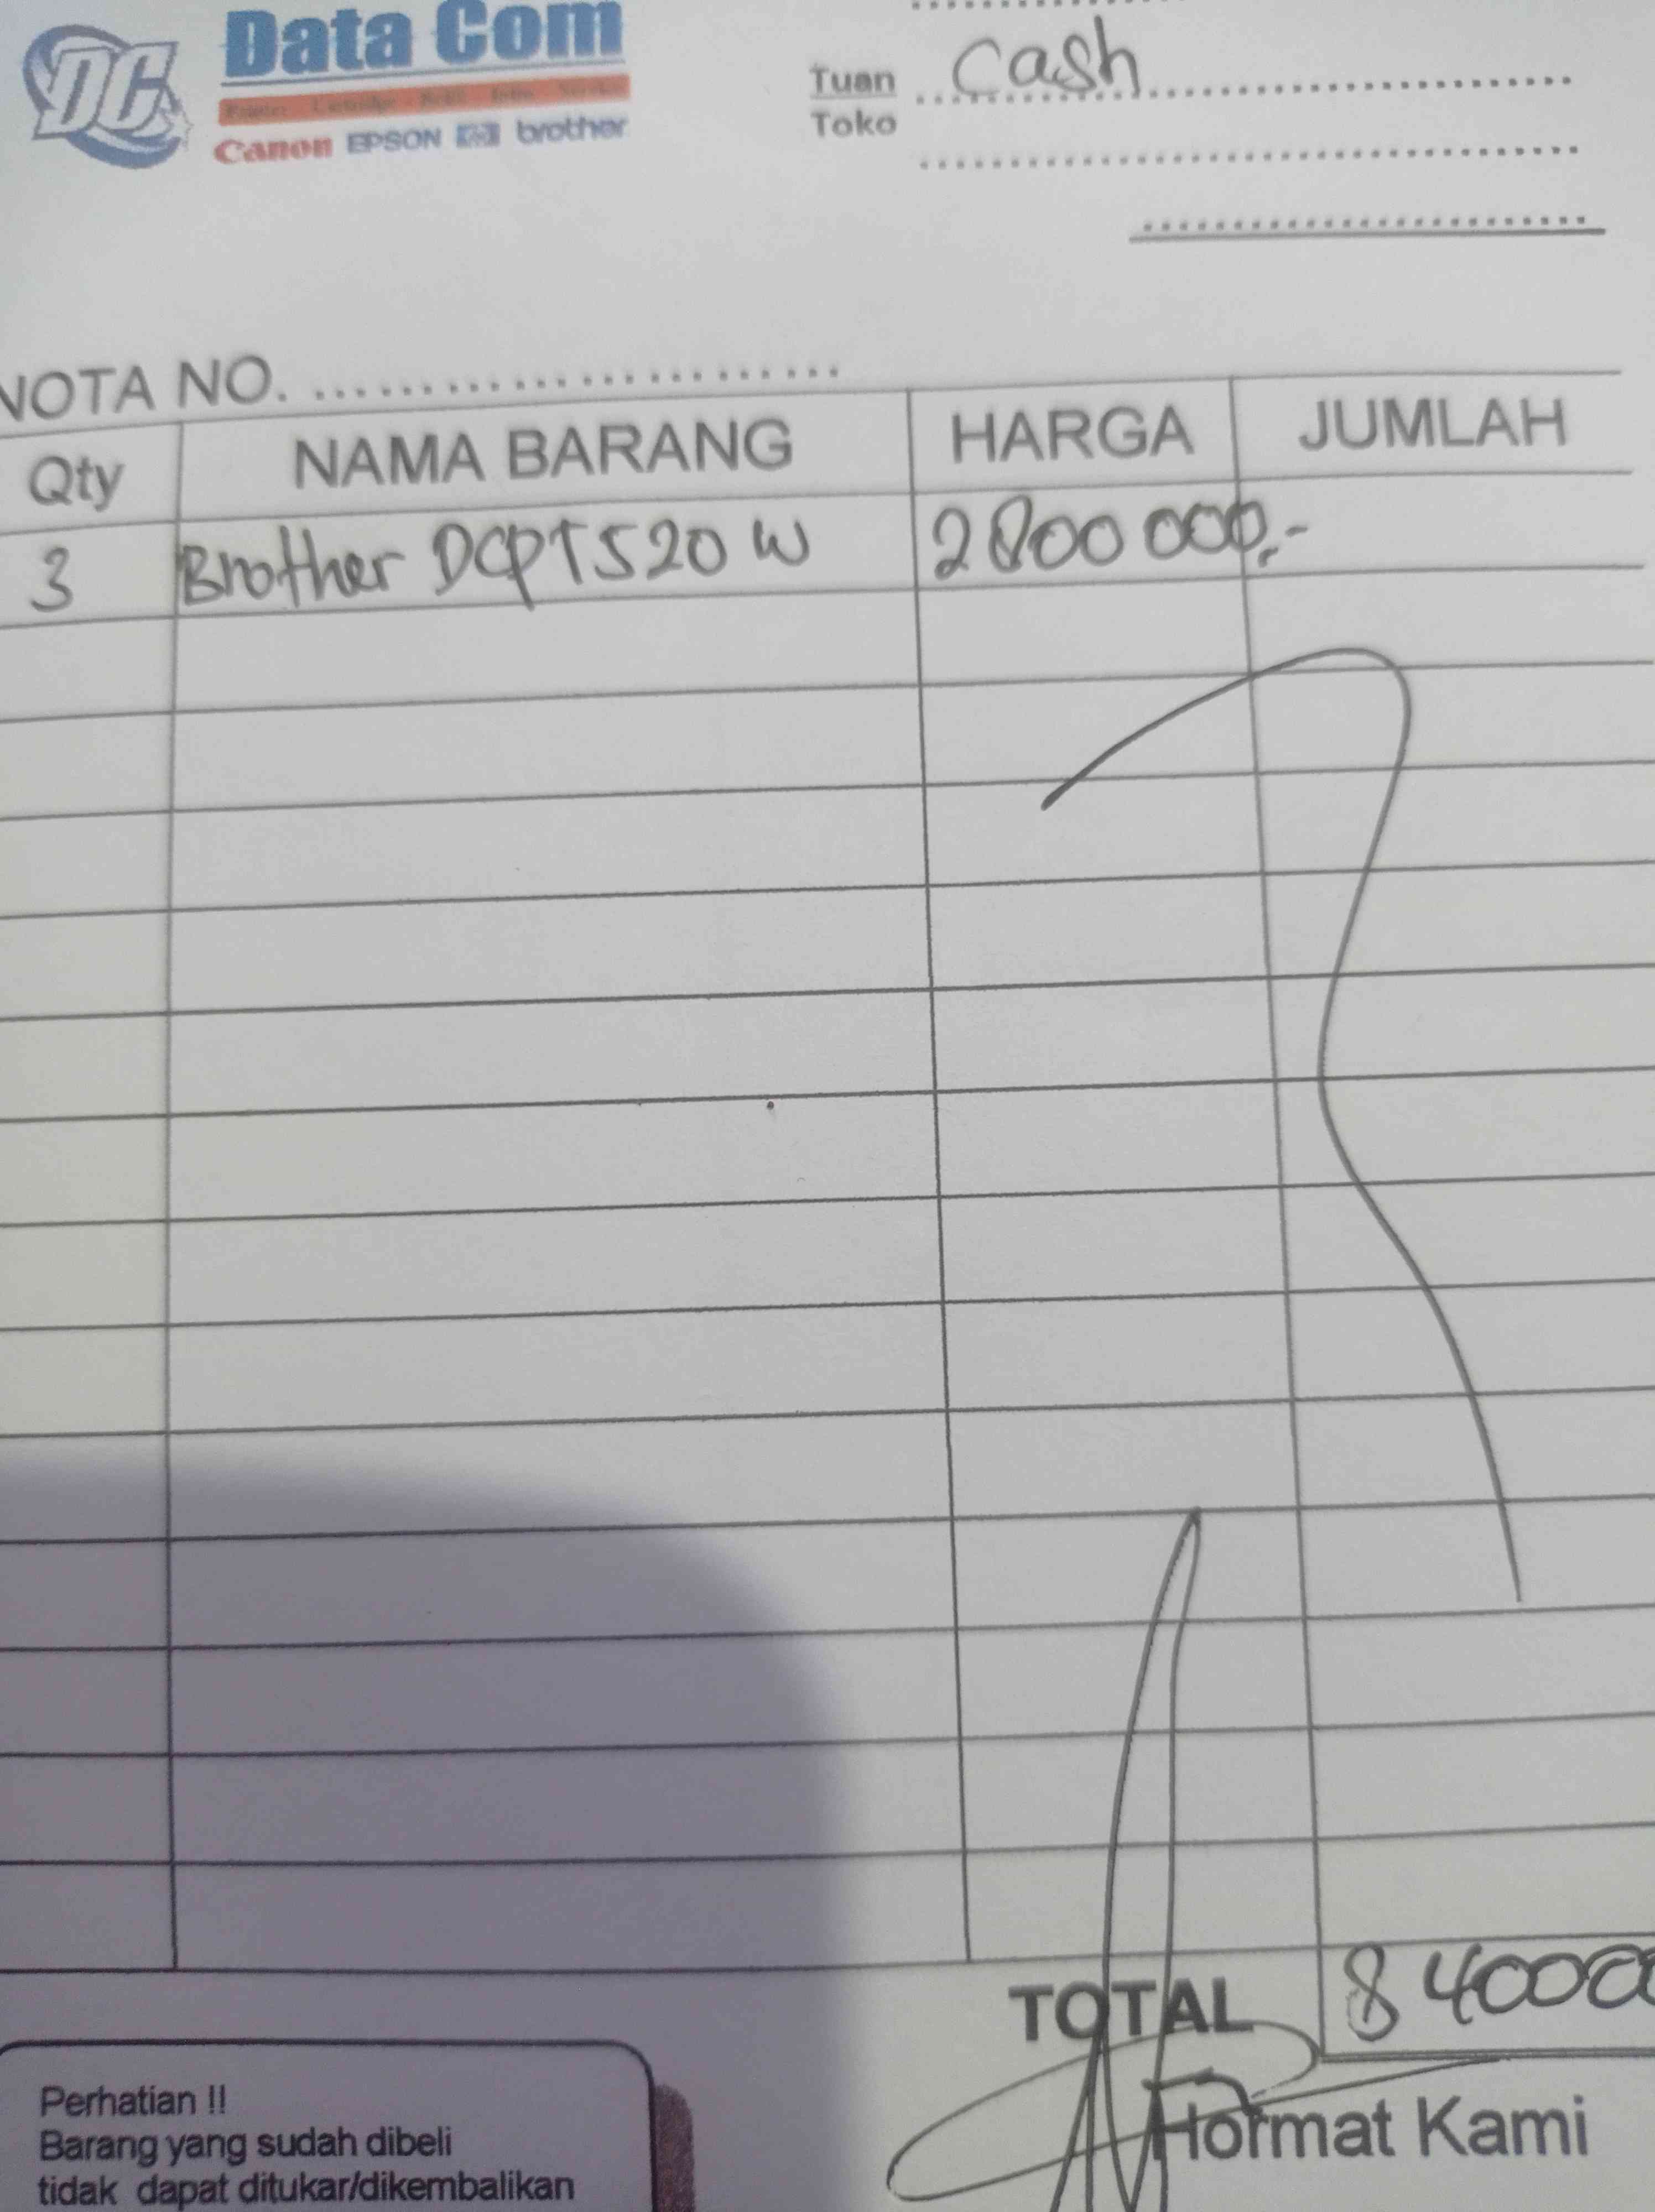 DC
Data Com
Canon EPSON hp brother
Tuan cash
Toko
NOTA NO.
Qty NAMA BARANG HARGA JUMLAH
3 Brother DCPT520 W 2800 000,-
TOTAL 84000
Hormat Kami
Perhatian !!
Barang yang sudah dibeli
tidak dapat ditukar/dikembalikan